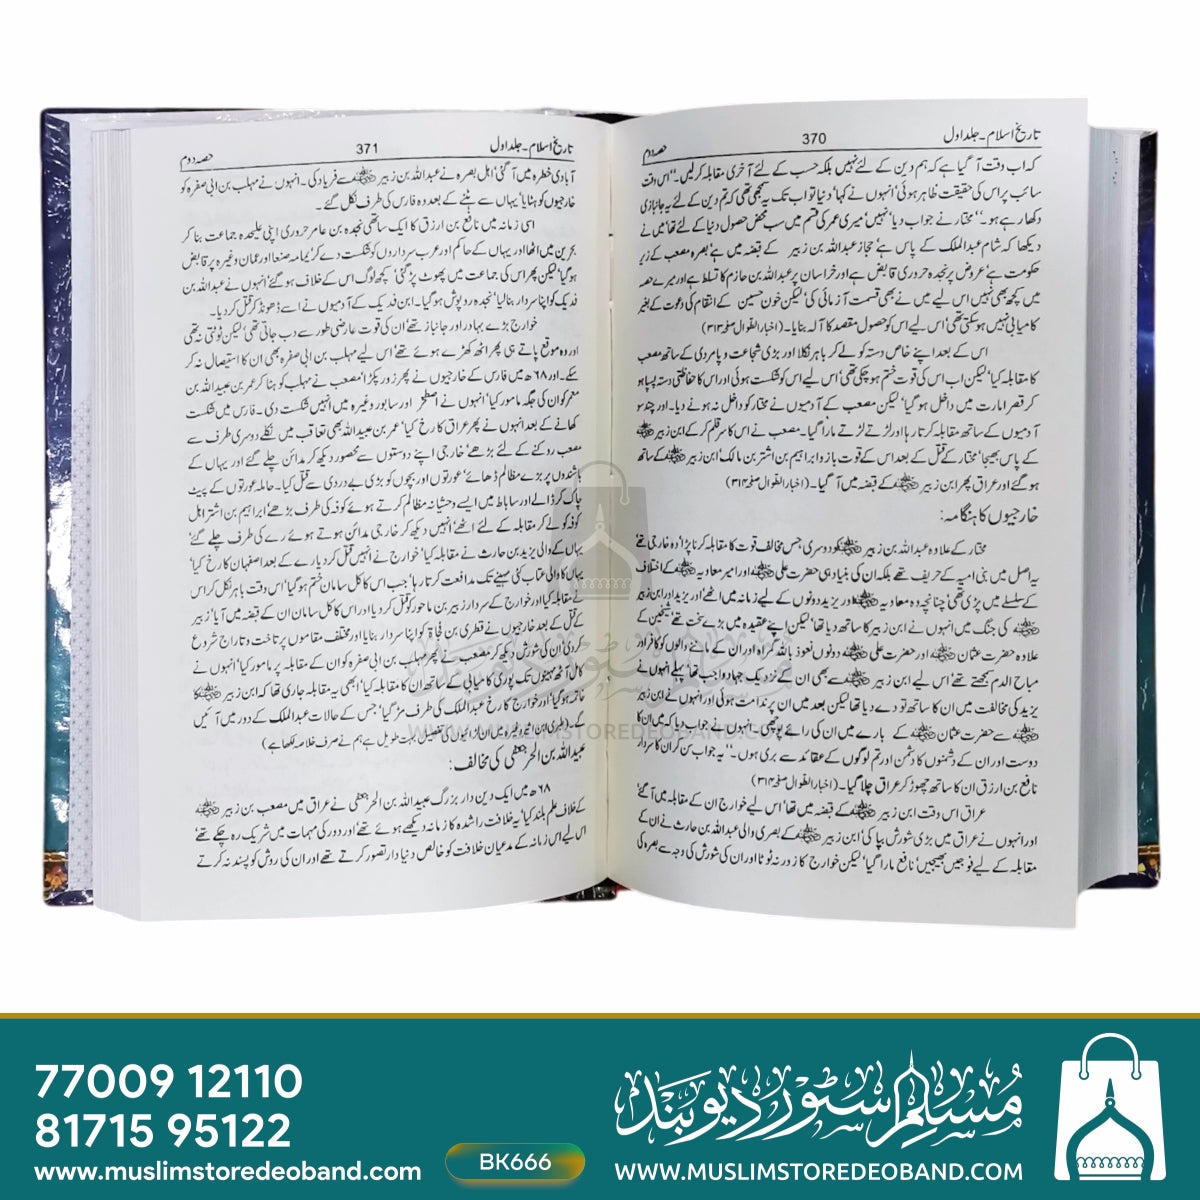 تاریخ اسلام۔ جلد اول 370 حصہ دوم
کہ اب وقت آ گیا ہے کہ ہم دین کے لئے نہیں بلکہ حسب کے لئے آخری مقابلہ کرلیں۔" اس وقت
سائب پر اس کی حقیقت ظاہر ہوئی' انہوں نے کہا' دنیا تو اب تک یہ سمجھی تھی کہ تم دین کے لئے یہ جانبازی
دکھا رہے ہو۔" مختار نے جواب دیا' نہیں' میری عمر کی قسم میں سب محض حصول دنیا کے لئے تھا' میں نے
دیکھا کہ شام عبدالملک کے پاس ہے' حجاز عبداللہ بن زبیر کے قبضہ میں ہے' بصرہ مصعب کے زیر
حکومت ہے' عروض پر نجدہ حروری قابض ہے اور خراسان پر عبداللہ بن حازم کا تسلط ہے اور میرے حصہ
میں کچھ بھی نہیں اس لیے میں نے بھی قسمت آزمائی کی' لیکن خون حسین کے انتقام کی دعوت کے بغیر
کامیابی نہیں ہو سکتی تھی' اس لیے اس کو حصول مقصد کا آلہ بنایا۔ (اخبار الطوال صفحہ ۳۱۳)
اس کے بعد اپنے خاص دستہ کو لے کر باہر نکلا اور بڑی شجاعت و پامردی کے ساتھ مصعب
کا مقابلہ کیا' لیکن اب اس کی قوت ختم ہو چکی تھی' اس لیے اس کو شکست ہوئی اور اس کا حفاظتی دستہ پسپا ہو
کر قصر امارت میں داخل ہو گیا' لیکن مصعب کے آدمیوں نے مختار کو داخل نہ ہونے دیا۔ اور چند سو
آدمیوں کے ساتھ مقابلہ کرتا رہا اور لڑتے لڑتے مارا گیا۔ مصعب نے اس کا سر قلم کر کے ابن زبیر
کے پاس بھیجا' مختار کے قتل کے بعد اس کے قوت بازو ابراہیم بن اشتر بن مالک' ابن زبیر کے ساتھ
ہو گئے اور عراق پھر ابن زبیر کے قبضہ میں آ گیا۔ (اخبار الطوال صفحہ ۳۱۴)
خارجیوں کا ہنگامہ:
مختار کے علاوہ عبداللہ بن زبیر کو دوسری جس مخالف قوت کا مقابلہ کرنا پڑا' وہ خارجی تھے
یہ اصل میں بنی امیہ کے حریف تھے بلکہ ان کی بنیاد ہی حضرت علی اور امیر معاویہ کے اختلاف
کے سلسلے میں پڑی تھی' چنانچہ وہ معاویہ اور یزید دونوں کے لیے زمانہ میں اٹھے' اور یزید اور ابن زبیر
کی جنگ میں انہوں نے ابن زبیر کا ساتھ دیا تھا' لیکن اپنے عقیدہ میں بڑے سخت تھے' شیخین کے
علاوہ حضرت عثمان اور حضرت علی دونوں نعوذ باللہ گمراہ اور ان کے ماننے والوں کو کافر اور
مباح الدم سمجھتے تھے' اس لیے ابن زبیر سے بھی ان کے نزدیک جہاد واجب تھا' پہلے انہوں نے
یزید کی مخالفت میں ان کا ساتھ تو دے دیا تھا' لیکن بعد میں ان پر ندامت ہوئی اور انہوں نے ابن زبیر
سے حضرت عثمان کے بارے میں ان کی رائے پوچھی' انہوں نے جواب دیا کہ میں ان کا
دوست اور ان کے دشمنوں کا دشمن اور تم لوگوں کے عقائد سے بری ہوں۔" یہ جواب سن کر ان کا سردار
نافع بن ازرق ان کا ساتھ چھوڑ کر عراق چلا گیا۔ (اخبار الطوال صفحہ ۳۱۴)
عراق اس وقت ابن زبیر کے قبضہ میں تھا' اس لیے خوارج ان کے مقابلہ میں آ گئے
اور انہوں نے عراق میں بڑی شورش بپا کی' ابن زبیر کے بصری والی عبداللہ بن حارث نے ان کے
مقابلہ کے لیے فوجیں بھیجیں' نافع مارا گیا' لیکن خوارج کا زور نہ ٹوٹا اور ان کی شورش کی وجہ سے بصرہ کی
تاریخ اسلام۔ جلد اول 371 حصہ دوم
آبادی خطرہ میں آ گئی' اہل بصرہ نے عبداللہ بن زبیر سے فریاد کی۔ انہوں نے مہلب بن ابی صفرہ کو
خارجیوں کو ہٹایا' یہاں سے ہٹنے کے بعد وہ فارس کی طرف نکل گئے۔
اسی زمانہ میں نافع بن ارزق کا ایک ساتھی نجدہ بن عامر حروری اپنی علیحدہ جماعت بنا کر
بحرین میں اٹھا اور یہاں کے حاکم اور عرب سرداروں کو شکست دے کر' یمامہ صنعا اور عمان وغیرہ پر قابض
ہو گیا' لیکن پھر اس کی جماعت میں پھوٹ پڑ گئی' کچھ لوگ اس کے خلاف ہو گئے' انہوں نے عبداللہ بن
فدیک کو اپنا سردار بنا لیا' نجدہ روپوش ہو گیا۔ ابن فدیک کے آدمیوں نے اسے ڈھونڈ کر قتل کر دیا۔
خوارج بڑے بہادر اور جانباز تھے' ان کی قوت عارضی طور سے دب جاتی تھی' لیکن ٹوٹتی نہ تھی
اور وہ موقع پاتے ہی پھر اٹھ کھڑے ہوتے تھے' اس لیے مہلب بن ابی صفرہ بھی ان کا استیصال نہ کر
سکے۔ اور ۶۸ھ میں فارس کے خارجیوں نے پھر زور پکڑا' مصعب نے مہلب کو ہٹا کر عمر بن عبیداللہ بن
معمر کو ان کی جگہ مامور کیا' انہوں نے اصطخر اور سابور وغیرہ میں انہیں شکست دی۔ فارس میں شکست
کھانے کے بعد انہوں نے پھر عراق کا رخ کیا' عمر بن عبیداللہ بھی تعاقب میں نکلے دوسری طرف سے
مصعب روکنے کے لئے بڑھے' خارجی اپنے دوستوں سے محصور دیکھ کر مدائن چلے گئے اور یہاں کے
باشندوں پر بڑے مظالم ڈھائے' عورتوں اور بچوں کو بڑی بے دردی سے قتل کیا۔ حاملہ عورتوں کے پیٹ
چاک کر ڈالے اور ساباط میں ایسے وحشیانہ مظالم کرتے ہوئے کوفہ کی طرف بڑھے' ابراہیم بن اشتر اہل
کوفہ کو لے کر مقابلہ کے لئے اٹھے' انہیں دیکھ کر خارجی مدائن ہوتے ہوئے رے کی طرف چلے گئے
یہاں کے والی یزید بن حارث نے مقابلہ کیا' خوارج نے انہیں قتل کر دیا رے کے بعد اصفہان کا رخ کیا'
یہاں کا والی عتاب کئی مہینے تک مدافعت کرتا رہا' جب اس کا کل سامان ختم ہو گیا' اس وقت باہر نکل کر اس
نے مقابلہ کیا اور خوارج کے سردار زبیر بن ماحوز کو قتل کر دیا اور اس کا کل سامان ان کے قبضہ میں آیا' زبیر
کے قتل کے بعد خارجیوں نے قطری بن فجاءۃ کو اپنا سردار بنایا اور مختلف مقاموں پر تاخت و تاراج شروع
کر دی' ان کی شورش دیکھ کر مصعب نے پھر مہلب بن ابی صفرہ کو ان کے مقابلہ پر مامور کیا' انہوں نے
کامل آٹھ مہینوں تک پوری کامیابی کے ساتھ ان کا مقابلہ کیا' ابھی یہ مقابلہ جاری تھا کہ ابن زبیر کا
خاتمہ ہو گیا' اور خوارج کا رخ عبدالملک کی طرف مڑ گیا' جس کے حالات عبدالملک کے دور میں آئیں
گے۔ (طبری ابن اثیر وغیرہ میں ان لڑائیوں کی تفصیل بہت طویل ہے ہم نے صرف خلاصہ لکھا ہے)
عبیداللہ بن الحر جعفی کی مخالفت:
۶۸ھ میں ایک دین دار بزرگ عبیداللہ بن الحر جعفی نے عراق میں مصعب بن زبیر
کے خلاف علم بلند کیا' یہ خلافت راشدہ کا زمانہ دیکھے ہوئے تھے' اور دور کی مہمات میں شریک رہ چکے تھے'
اس لیے اس زمانہ کے مدعیان خلافت کو خالص دنیا دار تصور کرتے تھے اور ان کی روش کو پسند نہ کرتے
مسلم سٹور دیوبند
WWW.MUSLIMSTOREDEOBAND.COM
77009 12110
81715 95122
www.muslimstoredeoband.com
BK666
مسلم سٹور دیوبند
WWW.MUSLIMSTOREDEOBAND.COM